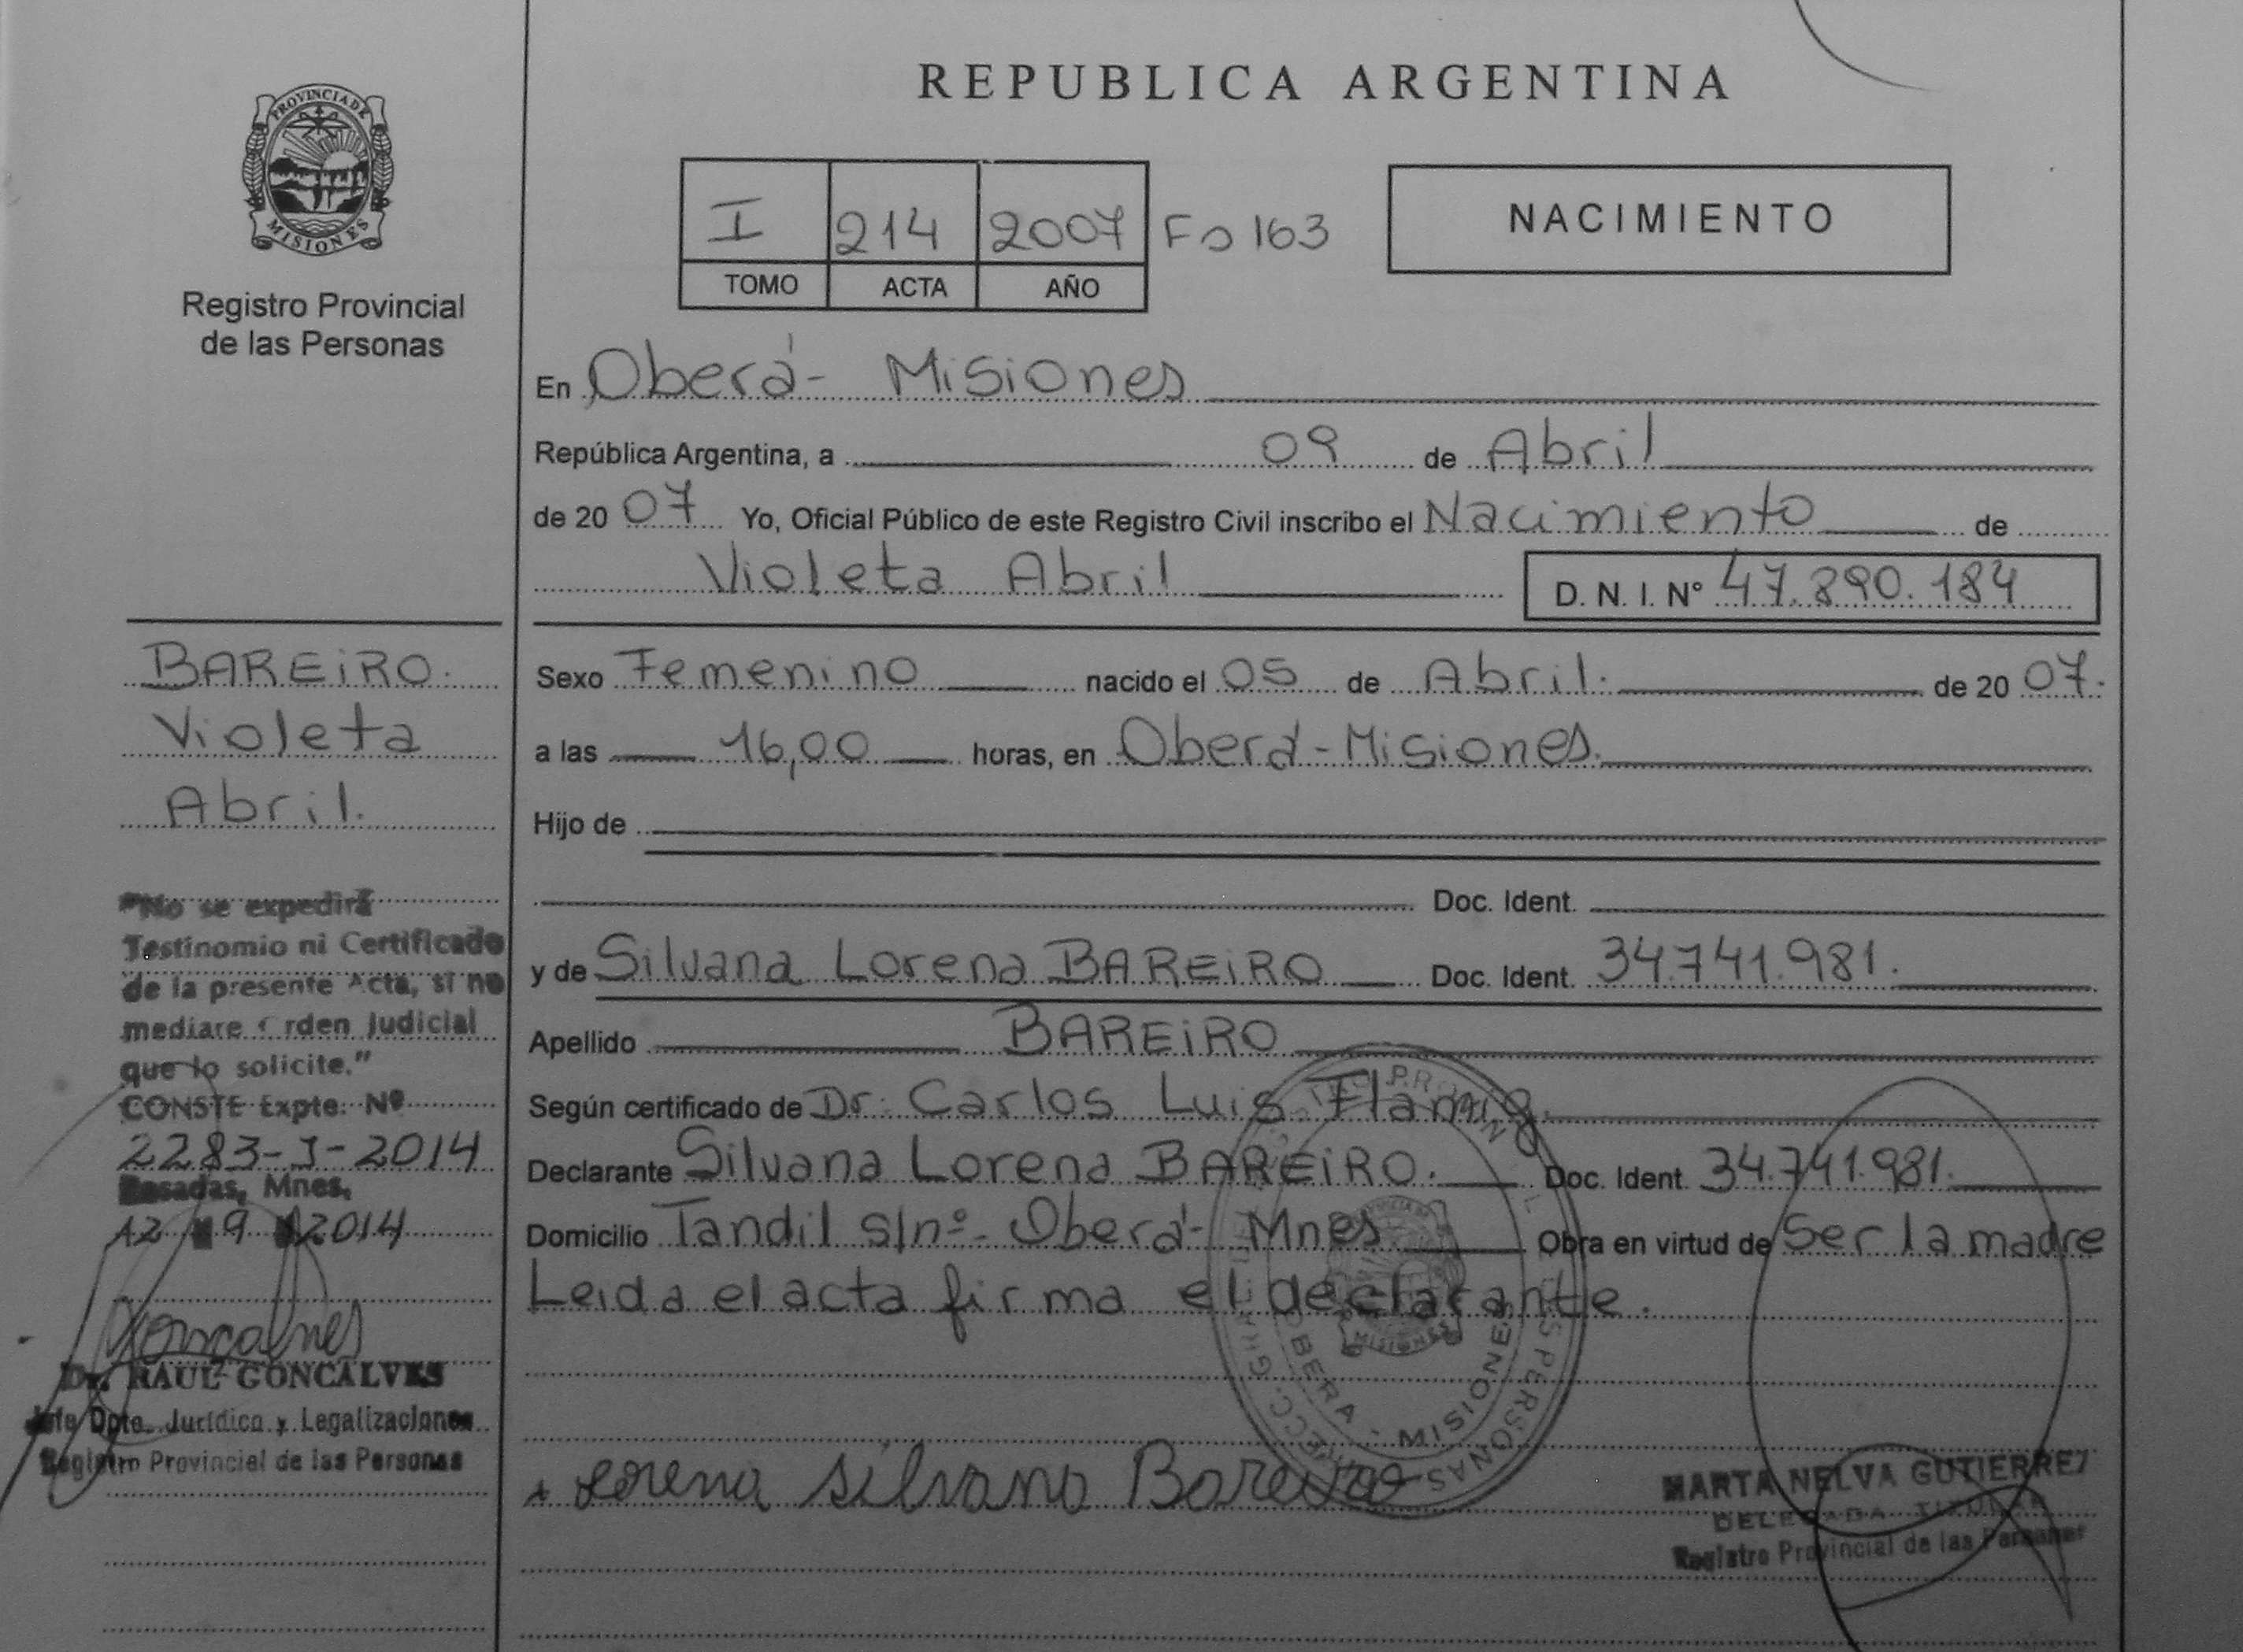 REPUBLICA ARGENTINA
PROVINCIA DE
MISIONES
Registro Provincial
de las Personas
I 214 2007 Fo 163
TOMO ACTA AÑO
NACIMIENTO
En Oberá - Misiones
República Argentina, a 09 de Abril
de 20 07 Yo, Oficial Público de este Registro Civil inscribo el Nacimiento de
Violeta Abril D. N. I. Nº 47.890.184
Sexo Femenino nacido el 05 de Abril. de 20 07.
a las 16,00 horas, en Oberá - Misiones.
Hijo de
Doc. Ident.
y de Silvana Lorena BAREiRO Doc. Ident. 34.741.981.
Apellido BAREiRO
Según certificado de Dr. Carlos Luis
Declarante Silvana Lorena BAREiRO. Doc. Ident. 34.741.981.
Domicilio Tandil s/nº - Oberá - Mnes Obra en virtud de Ser la madre
Leida el acta firma el declarante.
Lorena Silvana Bareiro
MARTA NELVA GUTIERREZ
DELEGADA TITULAR
Registro Provincial de las Personas
OBERA - MISIONES
MISIONES
BAREiRO.
Violeta
Abril.
"No se expedirá
Testinomio ni Certificado
de la presente Acta, si no
mediare Orden Judicial
que lo solicite."
CONSTE Expte. Nº
2283-J-2014
Posadas, Mnes,
12 9 2014
Goncalves
Dr. RAUL GONCALVES
Jefe Dpto. Jurídico y Legalizaciones
Registro Provincial de las Personas